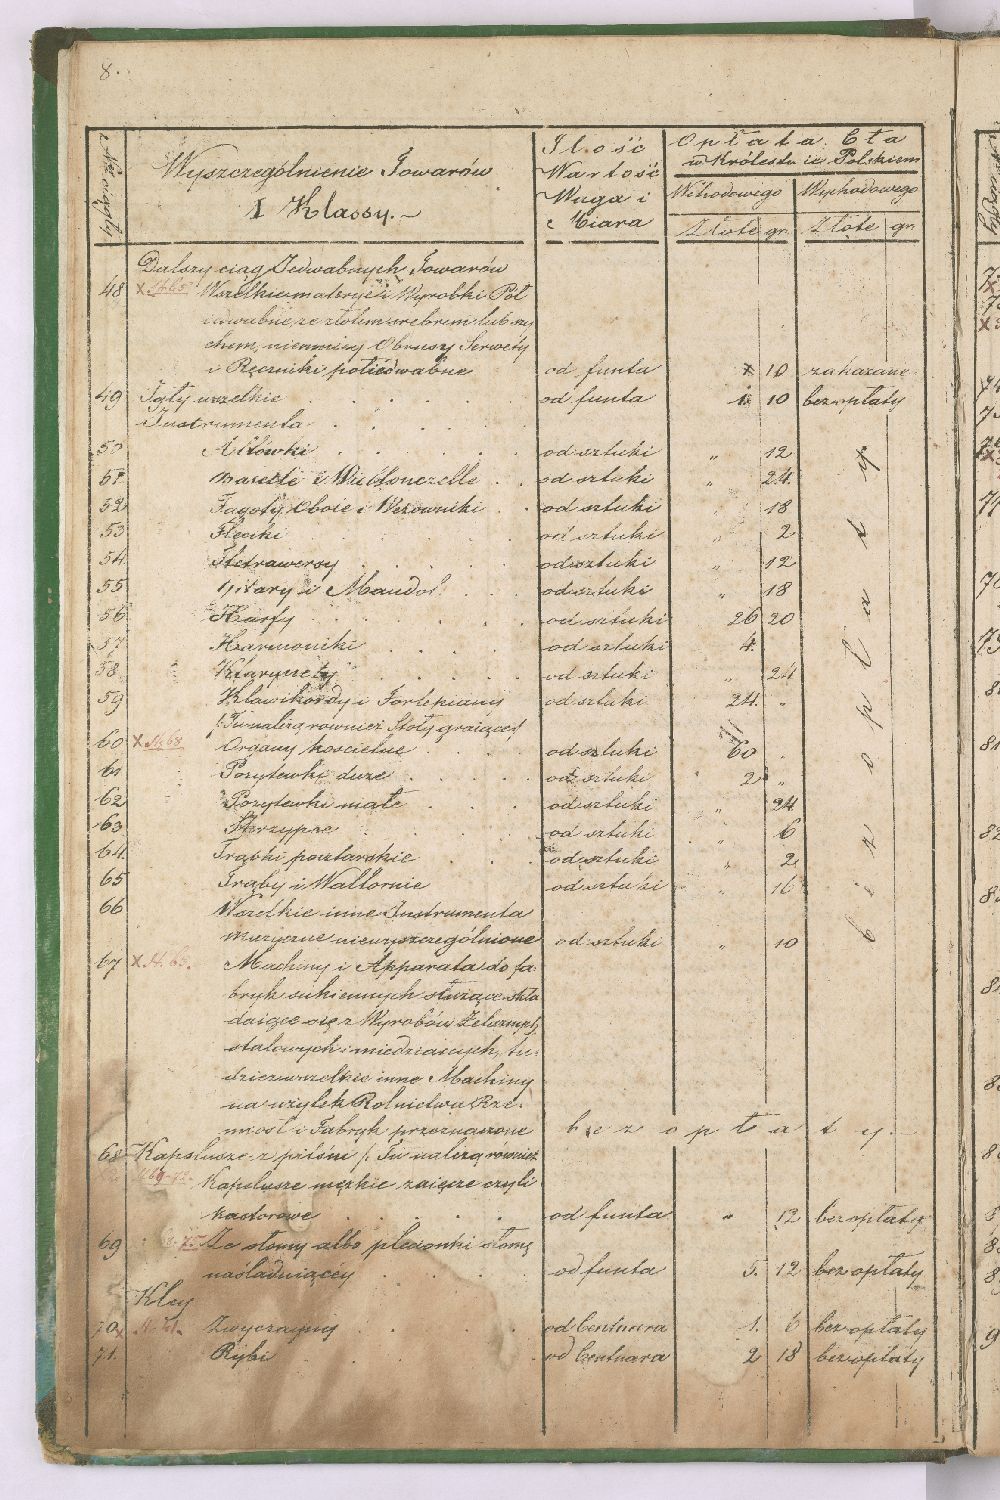 8.
Wyszczególnienie Towarów
I Klassy.
Ilość
Wartość
Waga i
Miara
Opłata Cła
w Królestwie Polskiem
Wchodowego Wychodowego
Złote gr. Złote gr.
Dalszy ciąg Jedwabnych Towarów
48 Wszelkie materye i Wyrobki Pół
jedwabne ze złotem srebrem lub szy
chem, niemniey Obrusy Serwety
i Ręczniki półjedwabne od funta 10 zakazane
49 Igły wszelkie od funta 1 10 bez opłaty
Instrumenta
50 Altówki od sztuki " 12
51 Basetle i Wiolonczelle od sztuki " 24
52 Fagoty, Oboie i Wężowniki od sztuki 18
53 Fleciki od sztuki " 2
54 Fletrawersy od sztuki " 12
55 Gitary i Mandol od sztuki " 18
56 Harfy od sztuki 26 20
57 Harmoniki od sztuki 4
58 Klarynety od sztuki " 24
59 Klawikordy i Fortepiany od sztuki 24 "
/: Tu należą równiez Stoły graiące :/
60 x N. 68 Organy kościelne od sztuki 60
61 Pozytewki duże od sztuki 2 "
62 Pozytewki małe od sztuki " 24
63 Skrzypce od sztuki " 6
64 Trąbki pocztarskie od sztuki " 2
65 Trąby i Waltornie od sztuki " 16
66 Wszelkie inne Instrumenta
muzyczne niewyszczególnione od sztuki " 10
bez opłaty
67 x N. 65. Machiny i Apparata do fa
bryk sukiennych służące skła
daiące się z Wyrobów Żelaznych
stalowych i miedzianych, tu
dzież wszelkie inne Machiny
na użytek Rolnictwa Rze
miosł i Fabryk przeznaczone bez opłaty
68 Kapelusze z pilśni /: Tu należą równiez
Kapelusze męzkie zaięcze czyli
kastorowe od funta " 12 bez opłaty
69 Ze słomy albo plecionki słomę
naśladuiącey od funta 5. 12 bez opłaty
Kley
70 Zwyczayny od Centnara 1. 6 bez opłaty
71. Rybi od Centnara 2 18 bez opłaty